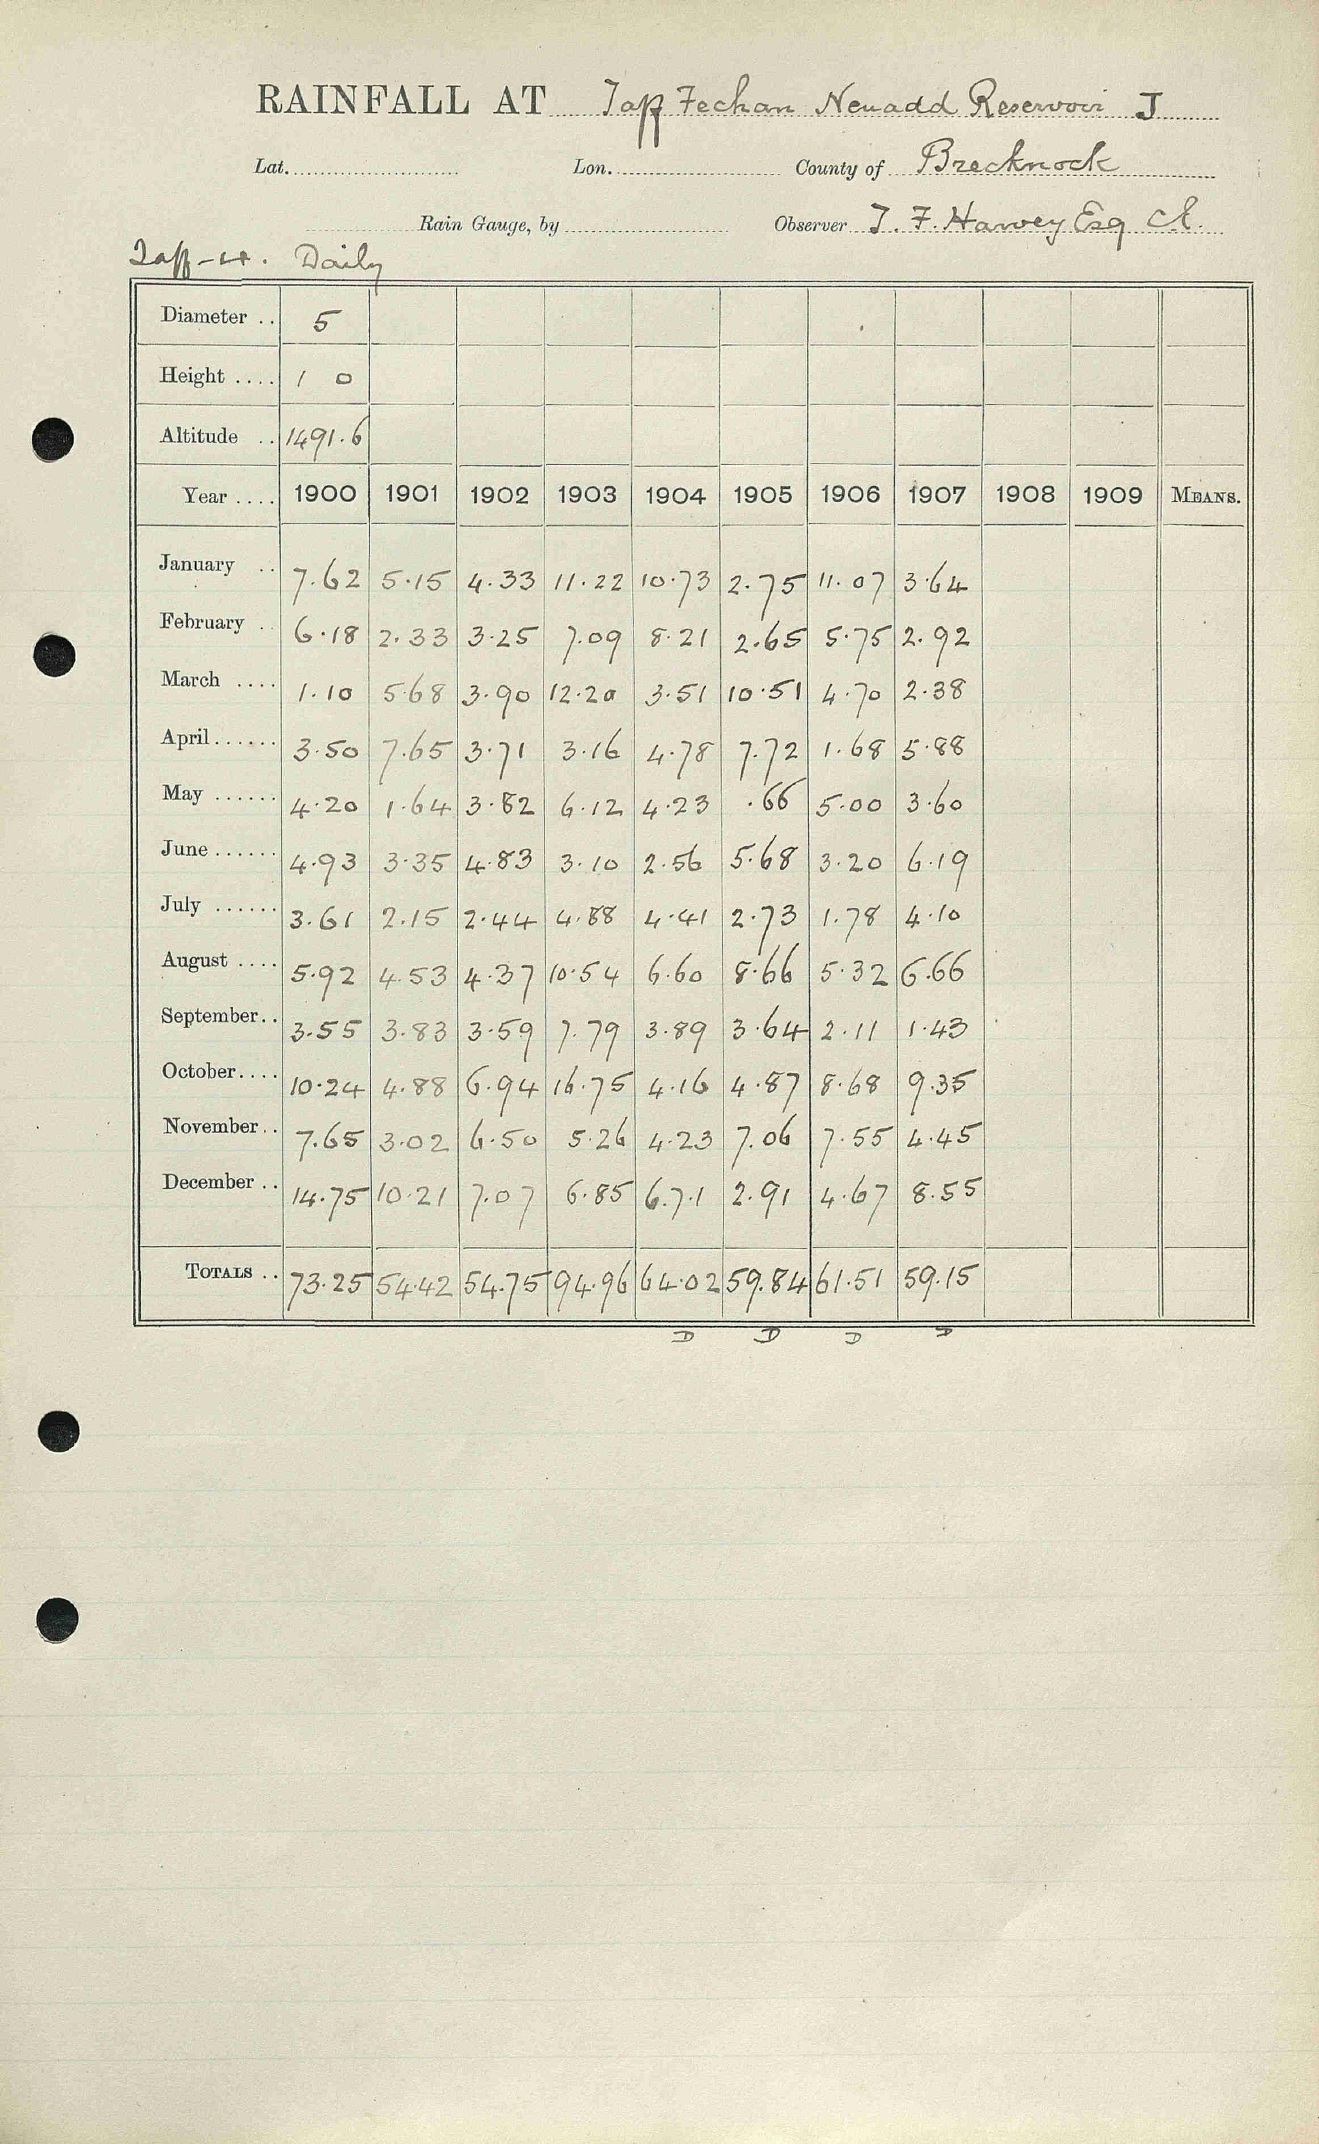 RAINFALL AT Taff Fechan Neuadd Reservoir J
Lat. Lon. County of Brecknock
Rain Gauge, by Observer T. F. Harvey Esq C.E.
Taff-H. Daily
Diameter .. 5
Height .... 1 0
Altitude .. 1491.6
Year .... 1900 1901 1902 1903 1904 1905 1906 1907 1908 1909 MEANS.
January .. 7.62 5.15 4.33 11.22 10.73 2.75 11.07 3.64
February .. 6.18 2.33 3.25 7.09 8.21 2.65 5.75 2.92
March .... 1.10 5.68 3.90 12.20 3.51 10.51 4.70 2.38
April ...... 3.50 7.65 3.71 3.16 4.78 7.72 1.68 5.88
May ...... 4.20 1.64 3.82 6.12 4.23 .66 5.00 3.60
June ...... 4.93 3.35 4.83 3.10 2.56 5.68 3.20 6.19
July ...... 3.61 2.15 2.44 4.88 4.41 2.73 1.78 4.10
August .... 5.92 4.53 4.37 10.54 6.60 8.66 5.32 6.66
September.. 3.55 3.83 3.59 7.79 3.89 3.64 2.11 1.43
October.... 10.24 4.88 6.94 16.75 4.16 4.87 8.68 9.35
November.. 7.65 3.02 6.50 5.26 4.23 7.06 7.55 4.45
December .. 14.75 10.21 7.07 6.85 6.71 2.91 4.67 8.55
TOTALS .. 73.25 54.42 54.75 94.96 64.02 59.84 61.51 59.15
D D D D